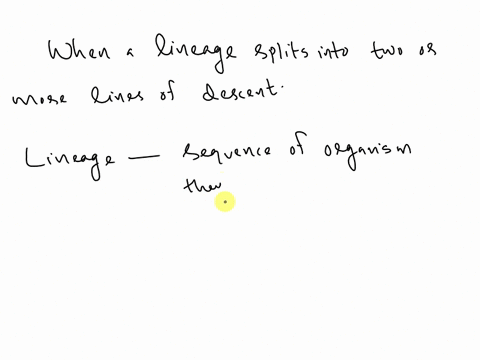 When a lineage splits into two or
more lines of descent.
Lineage — sequence of organism